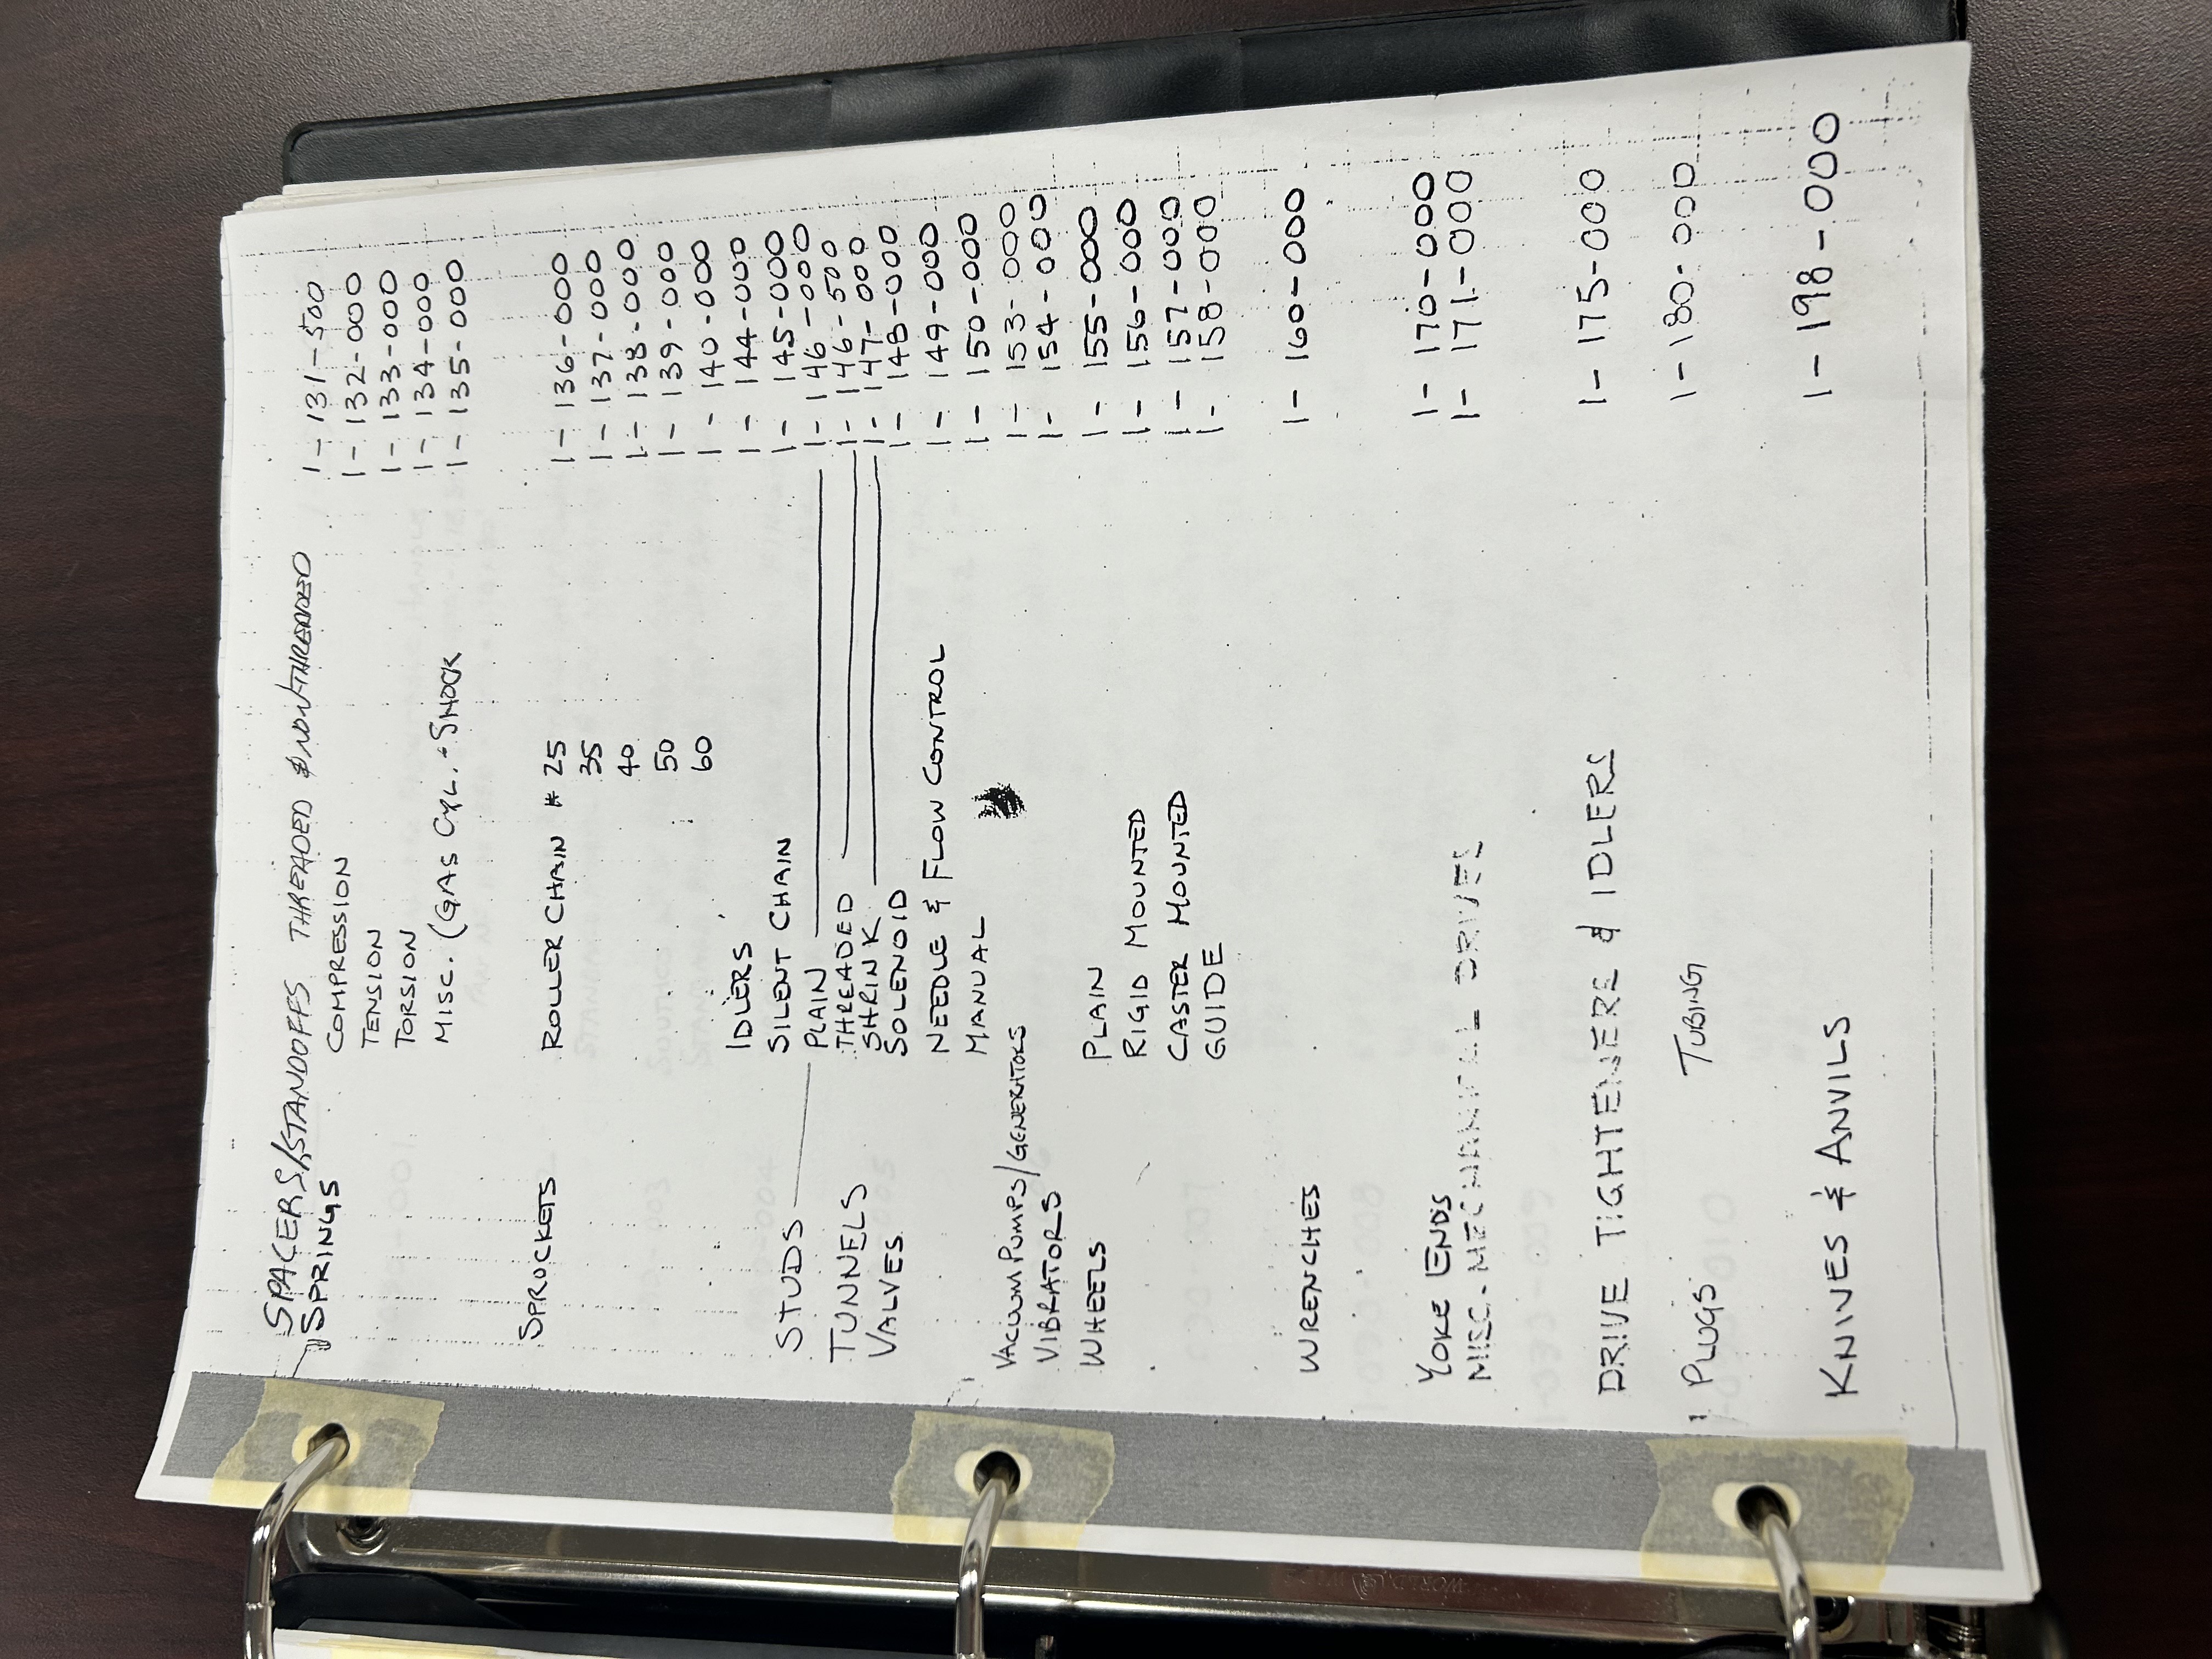 SPACERS/STANDOFFS THREADED & NONTHREADED 1-131-500
SPRINGS COMPRESSION 1-132-000
TENSION 1-133-000
TORSION 1-134-000
MISC. (GAS CYL. - SHOCK 1-135-000
SPROCKETS ROLLER CHAIN # 25 1-136-000
35 1-137-000
40 1-138-000
50 1-139-000
60 1-140-000
IDLERS 1-144-000
SILENT CHAIN 1-145-000
STUDS PLAIN 1-146-000
THREADED 1-146-500
TUNNELS SHRINK 1-147-000
VALVES SOLENOID 1-148-000
NEEDLE & FLOW CONTROL 1-149-000
MANUAL 1-150-000
VACUUM PUMPS/GENERATORS 1-153-000
VIBRATORS 1-154-000
WHEELS PLAIN 1-155-000
RIGID MOUNTED 1-156-000
CASTER MOUNTED 1-157-000
GUIDE 1-158-000
WRENCHES 1-160-000
YOKE ENDS 1-170-000
MISC. MECHANICAL DRIVES 1-171-000
DRIVE TIGHTENERS & IDLERS 1-175-000
PLUGS TUBING 1-180-000
KNIVES & ANVILS 1-198-000